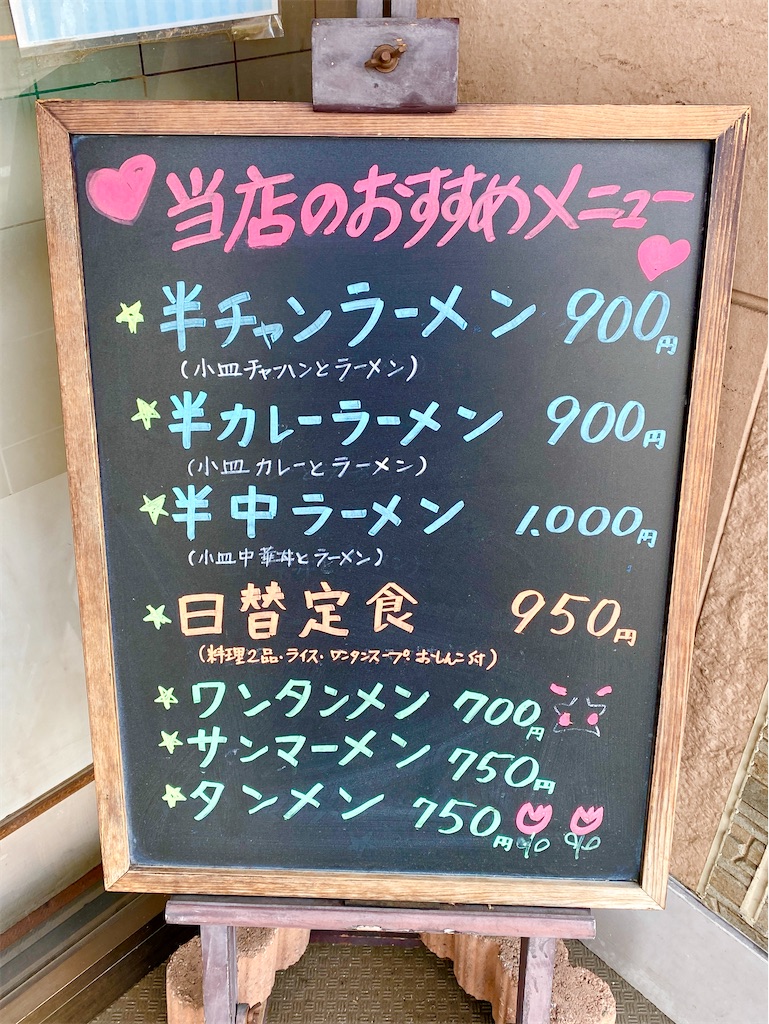 当店のおすすめメニュー
半チャンラーメン 900円
(小皿チャーハンとラーメン)
半カレーラーメン 900円
(小皿カレーとラーメン)
半中ラーメン 1.000円
(小皿中華丼とラーメン)
日替定食 950円
(料理2品・ライス・ワンタンスープ・おしんこ付)
ワンタンメン 700円
サンマーメン 750円
タンメン 750円